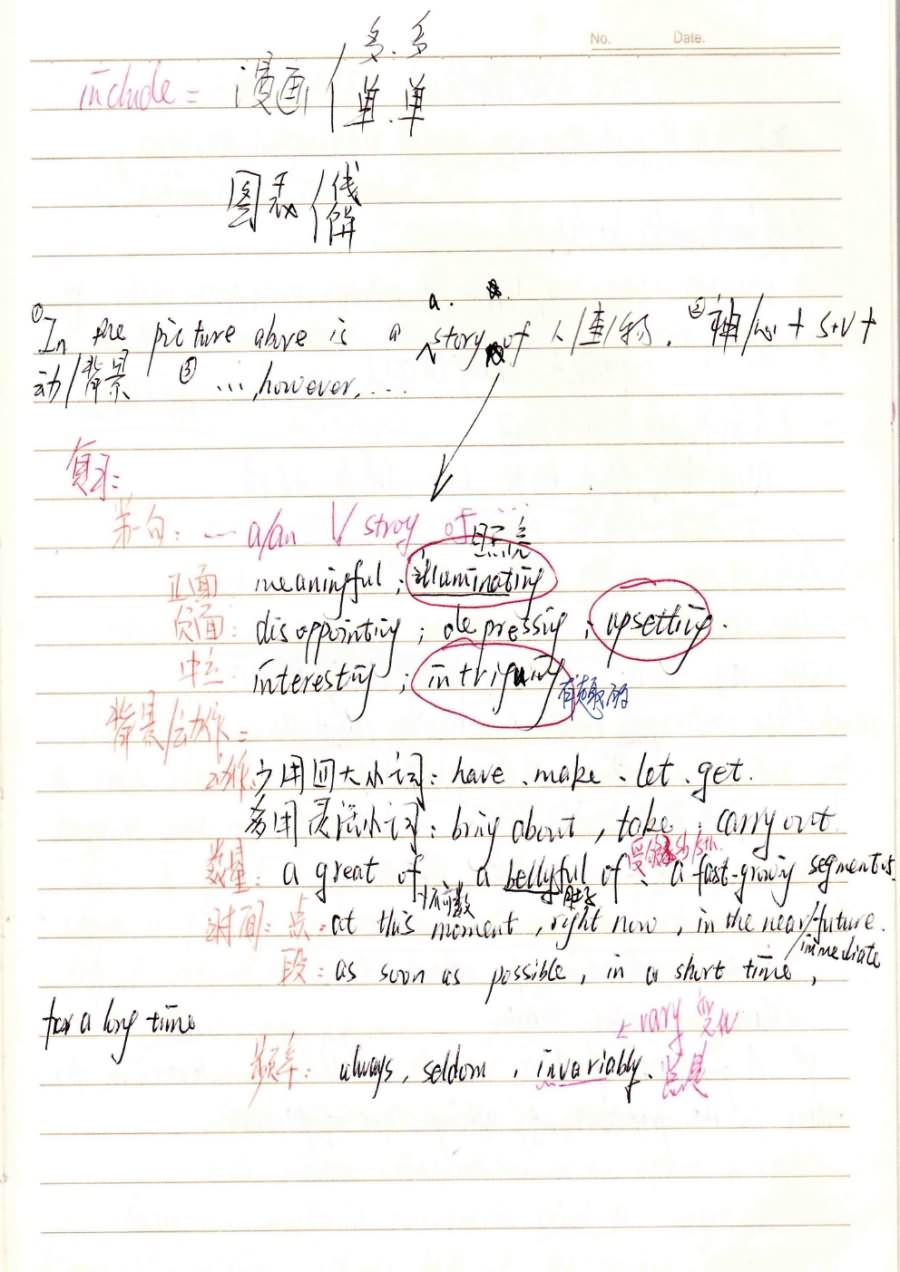 No. Date.
include = 漫画 { 多.多
单.单
图表 { 线
饼
a.
①In the picture above is a story of 人/事/物. ②神/心 + S+V +
动/背景 ③ ..., however, ...
复习:
第一句: — a/an V stroy of ...
照亮
正面 meaningful ; illuminating
负面: disappointing ; depressing ; upsetting.
中立: interesting ; intriguing 有趣的
背景/动作:
动作: 少用四大小词: have . make . let . get.
多用灵活小词: bring about , take , carry out
数量: a great of , a bellyful of 受够 sb/sth. 、a fast-growing segments
肚子
时间: 点: at this moment , right now , in the near future.
/immediate
段: as soon as possible , in a short time ,
for a long time
vary 变化
频率: always, seldom , invariably. 总是